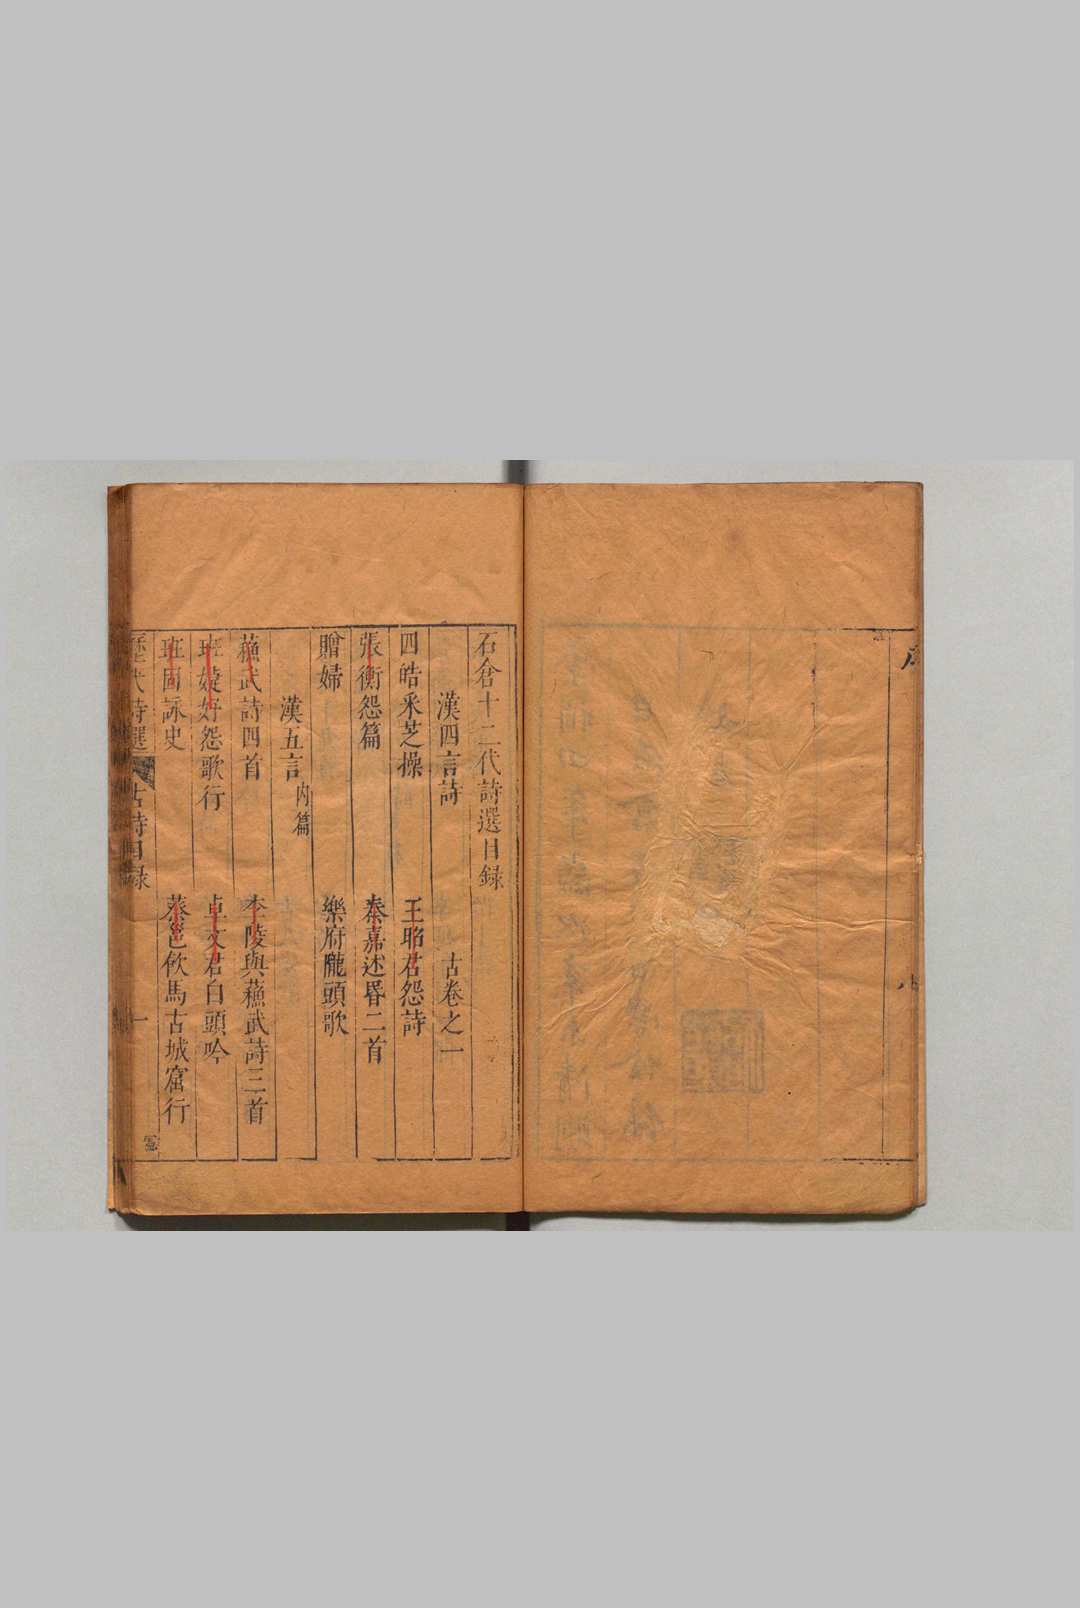 序
八
石倉十二代詩選目録
漢四言詩　古卷之一
四皓釆芝操　王昭君怨詩
張衡怨篇　秦嘉述昬二首
贈婦　樂府隴頭歌
漢五言內篇
蘓武詩四首　李陵與蘓武詩三首
班婕妤怨歌行　卓文君白頭吟
班固詠史　蔡邕飲馬古城窟行
歷代詩選　古詩目録　一